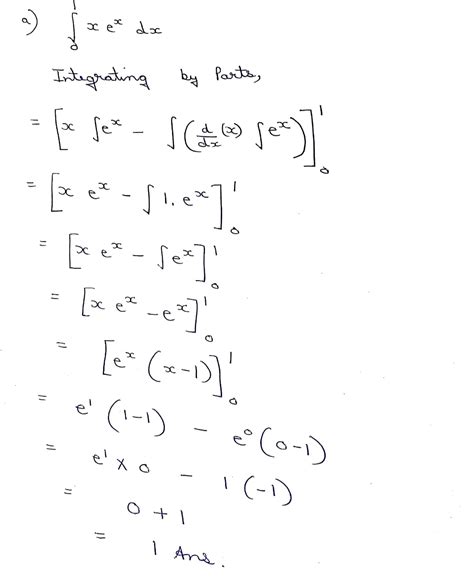 a) ∫₀¹ x eˣ dx
Integrating by Parts,
= [x ∫eˣ − ∫(d/dx (x) ∫eˣ)]₀¹
= [x eˣ − ∫1. eˣ]₀¹
= [x eˣ − ∫eˣ]₀¹
= [x eˣ − eˣ]₀¹
= [eˣ (x−1)]₀¹
= e¹ (1−1) − e⁰ (0−1)
= e¹ × 0 − 1 (−1)
= 0 + 1
= 1 Ans.